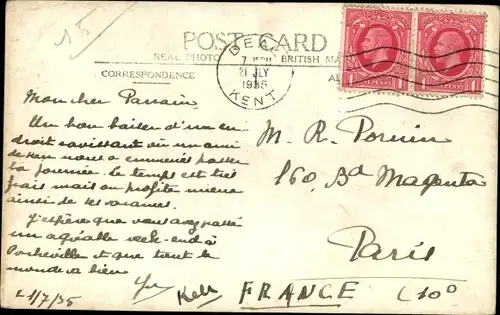 POST CARD
REAL PHOTO
BRITISH MA
CORRESPONDENCE
DEAL
7 15PM
21 JLY
1935
KENT
Mon cher Parrain
Un bon baiser d'un en-
droit ravissant où un ami
de Ken nous a emmenés passer
la journée. le temps est très
frais mais on profite mieux
ainsi de ses vacances.
J'espère que vous avez passé
un agréable week-end à
et que tout le
monde va bien
21/7/35
Ken
M. R.
160, Bd Magenta
Paris
FRANCE (10e)